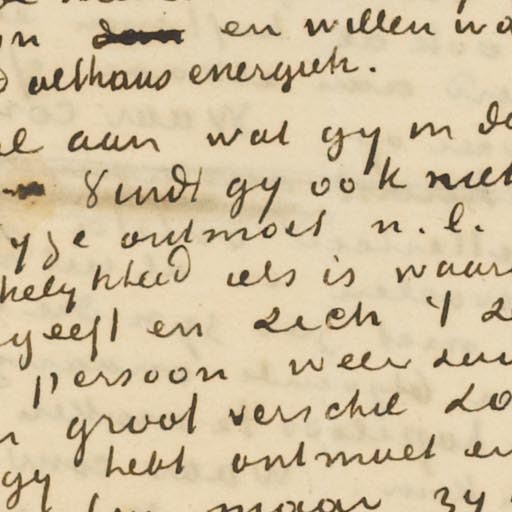 en willen
althans energiek.
aan wat gy in de
Vindt gy ook niet
ontmoet n. l.
als is waar
geeft en zich 't
persoon weer
groot verschil zo
gy hebt ontmoet en
maar zy